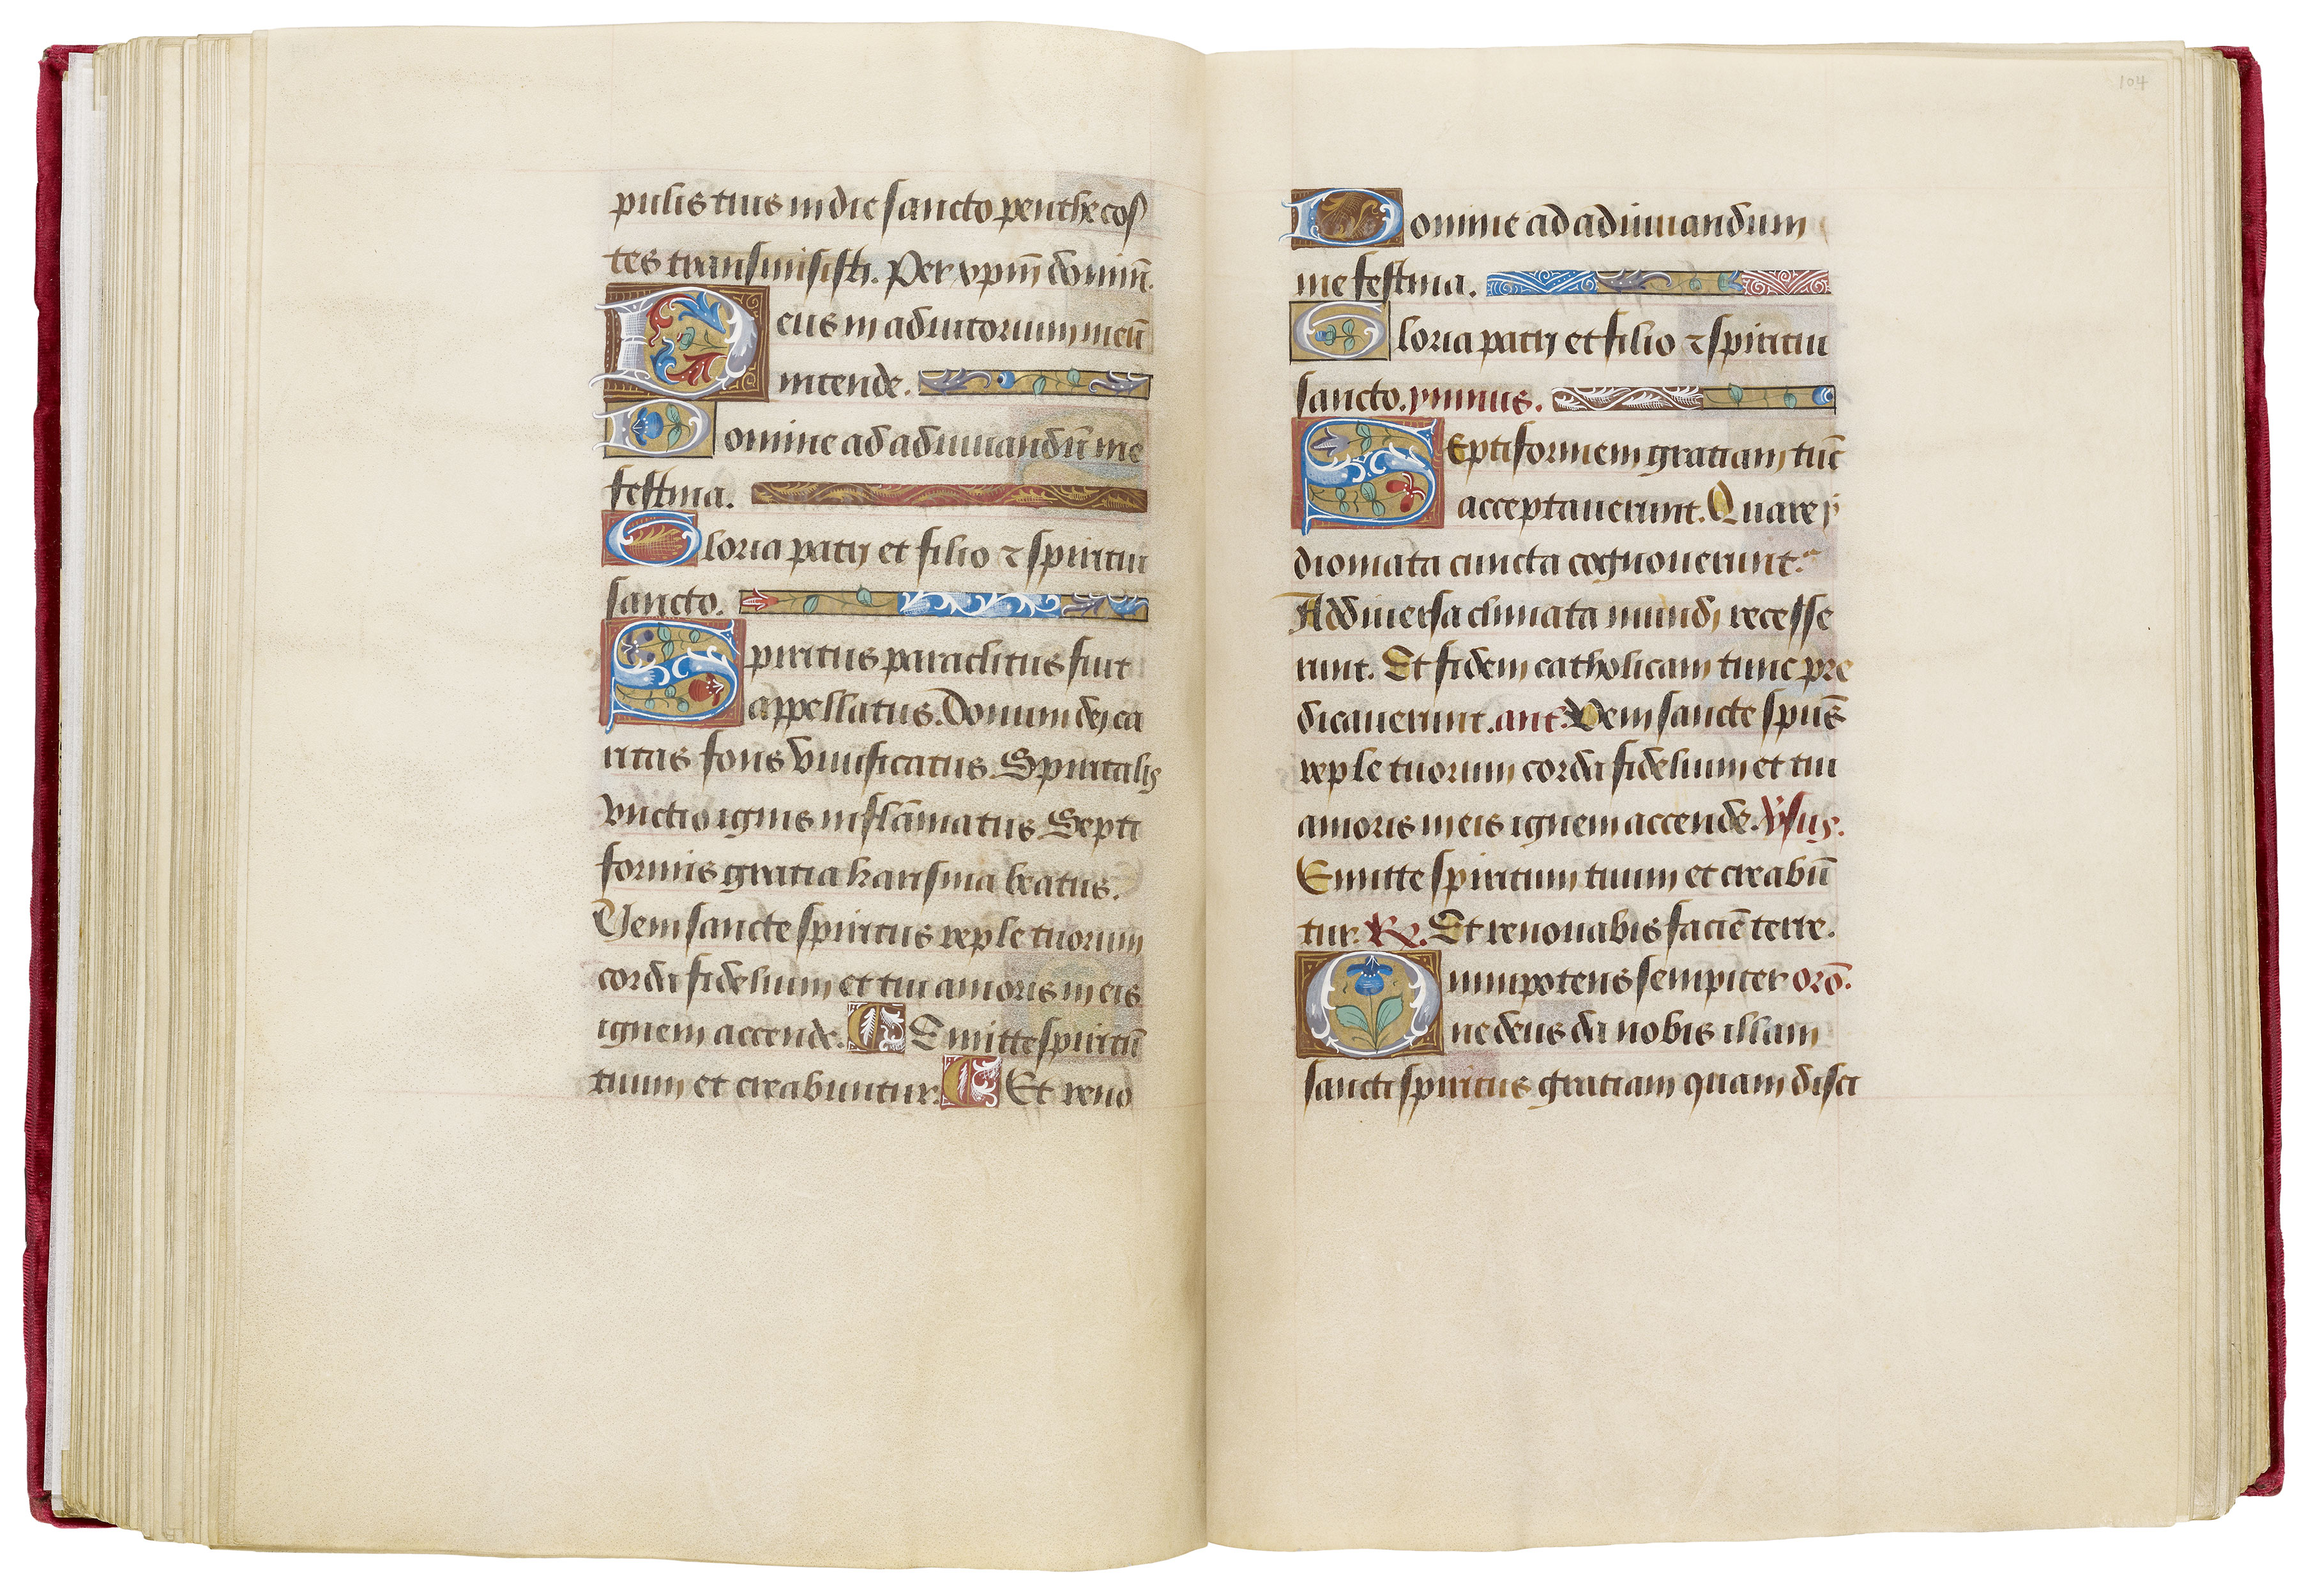 pulis tuis in die sancto penthecos
tes transmisisti. Per xpm̄ dominū.
Deus in adiutorium meū
intende.
Domine ad adiuuandū me
festina.
Gloria patri et filio ⁊ spiritui
sancto.
Spiritus paraclitus fuit
appellatus. Donum dei ca
ritas fons viuificatus Spiritalis
vnctio ignis inflāmatus Septi
formis gratia karisma beatus.
Veni sancte spiritus reple tuorum
corda fidelium et tui amoris in eis
ignem accende. Emitte spiritū
tuum et creabuntur. Et reno
104
Domine ad adiuuandum
me festina.
Gloria patri et filio ⁊ spiritui
sancto. ymnus.
SEptiformem gratiam tūc
acceptauerunt. Quare y
diomata cuncta cognouerunt.
Ad diuersa climata mundi recesse
runt. Et fidem catholicam tunc pre
dicauerunt. ant. Veni sancte spūs
reple tuorum corda fidelium et tui
amoris in eis ignem accende. v̇sus.
Emitte spiritum tuum et creabū
tur. ℟. Et renouabis faciē terre.
Omnipotens sempiter orō.
ne deus da nobis illam
sancti spiritus gratiam quam disci